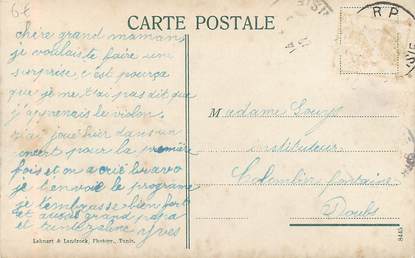 6f
CARTE POSTALE
RP
chère grand maman
je voulais te faire un
surprise, c'est pourça
que je ne t'ai pas dit que
j'apprenais le violon.
j'ai joué hier dans un
concert pour la première
fois et on a crié bravo
je t'envoie le programe
je t'embrasse bien fort
et aussi grand papa
et tante Yves
Madame Gouys
instituteur
Colombier fontaine
Doubs
Lehnert & Landrock, Photogr., Tunis.
8445